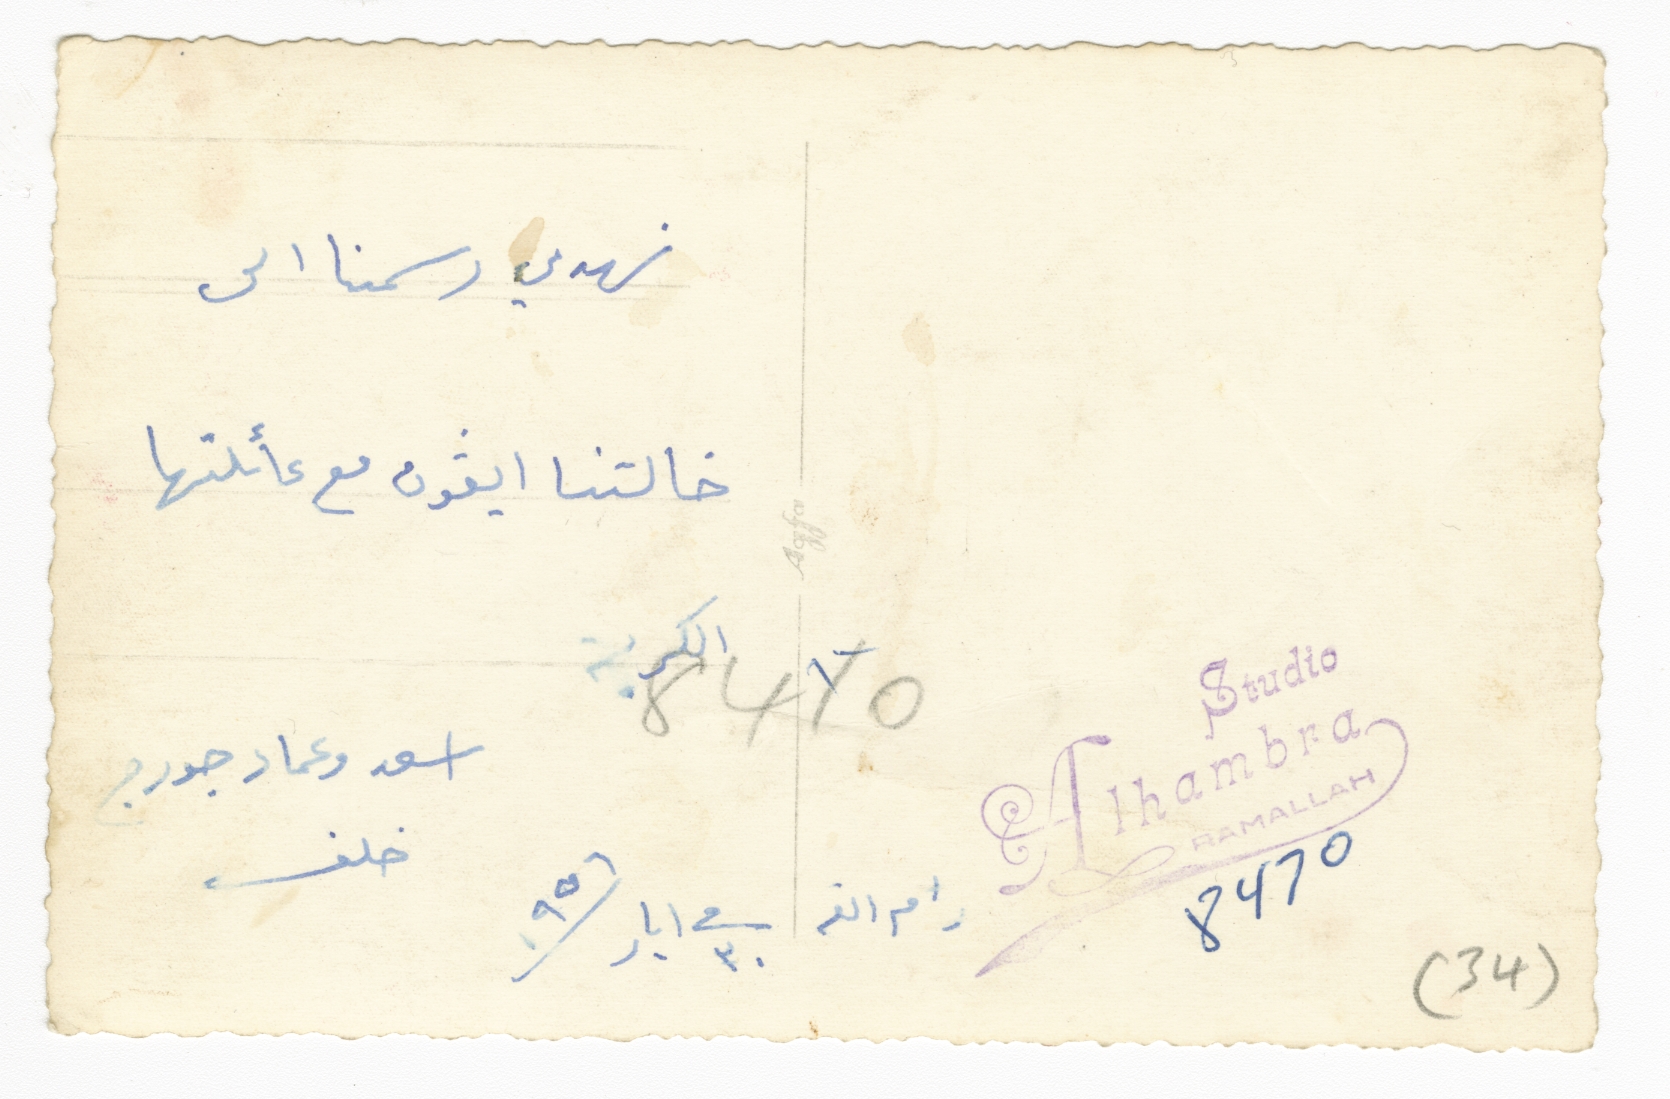 نهدي رسمنا الى
خالتنا ايڤون مع عائلتها
الكريمة
اسعد وعماد جورج
خلف
رام الله في ٣٠ ايار ٩٥٦
8470
Agfa
Studio
Alhambra
RAMALLAH
8470
(34)